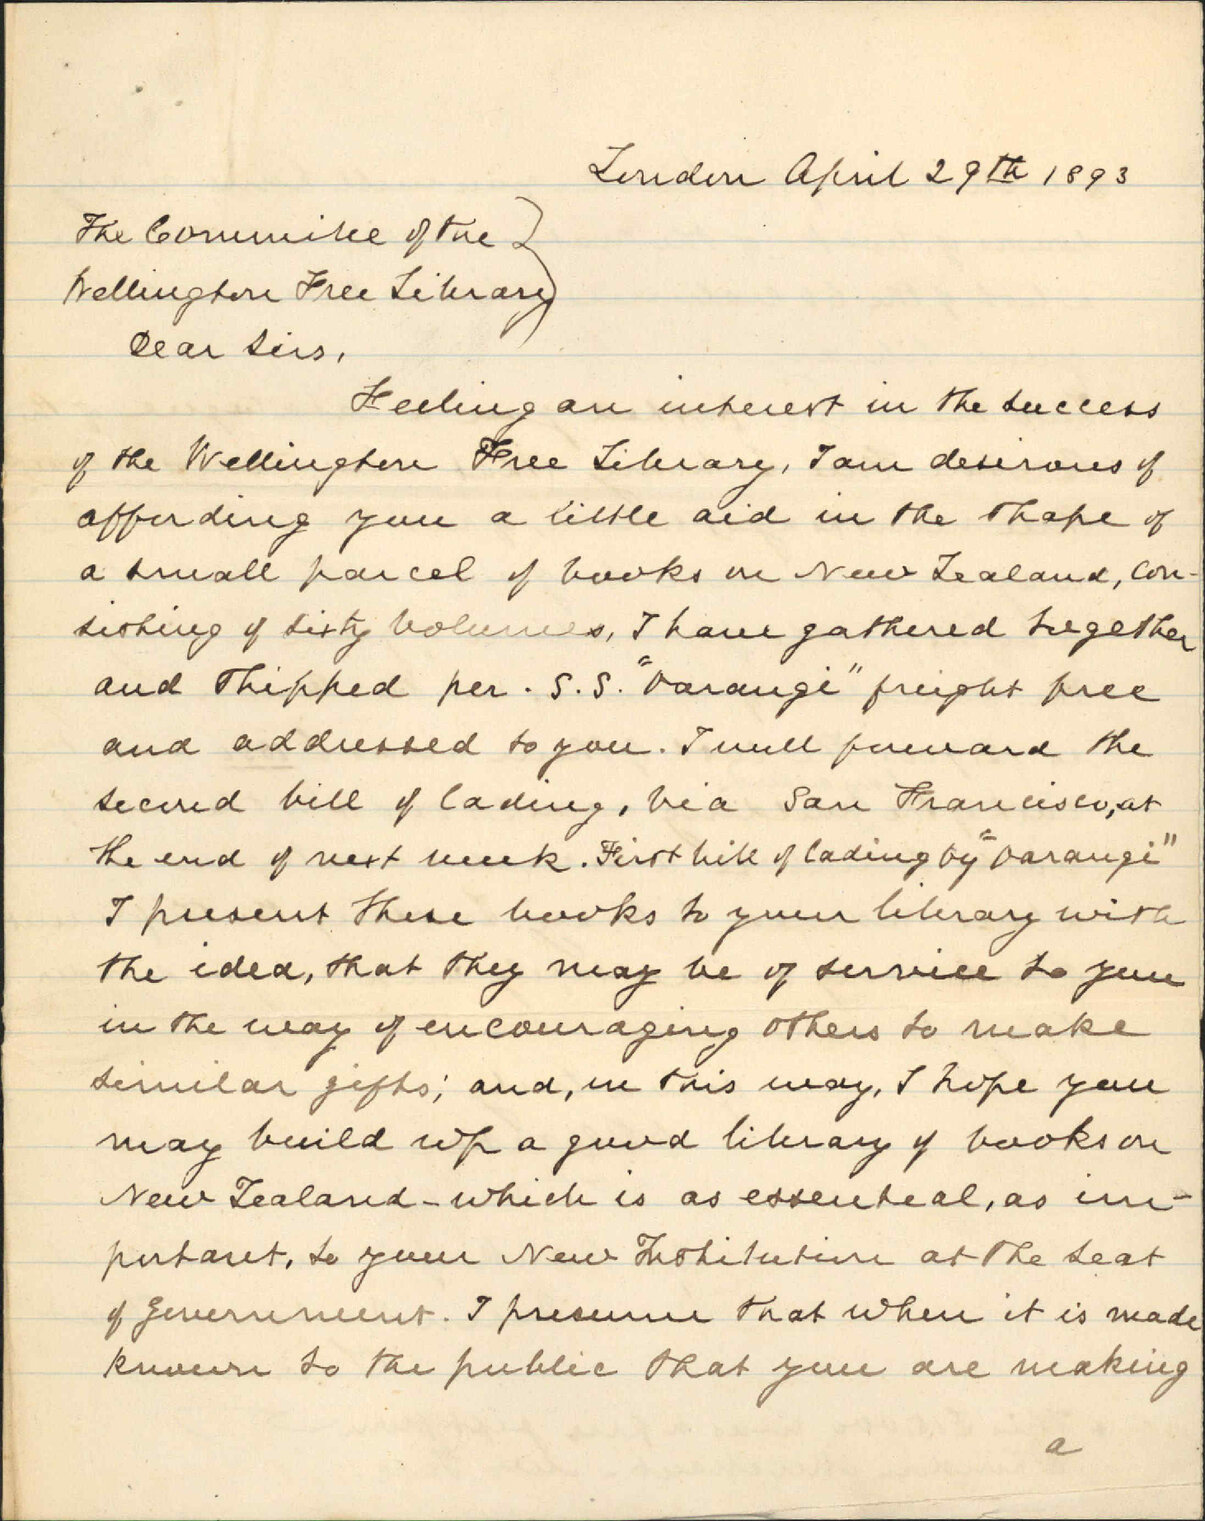 London April 29th 1893
The Committee of the
Wellington Free Library
Dear Sirs,
Feeling an interest in the success
of the Wellington Free Library, I am desirous of
affording you a little aid in the shape of
a small parcel of books on New Zealand, Con-
sisting of sixty volumes, I have gathered together
and shipped per. S.S. "Oarangi" freight free
and addressed to you. I will forward the
second bill of lading, via San Francisco, at
the end of next week. First bill of lading by "Oarangi"
I present these books to your library with
the idea, that they may be of service to you
in the way of encouraging others to make
similar gifts; and, in this way, I hope you
may build up a good library of books on
New Zealand - which is as essenteal, as im-
portant, to your New Institution at the seat
of Government. I presume that when it is made
known to the public that you are making
a